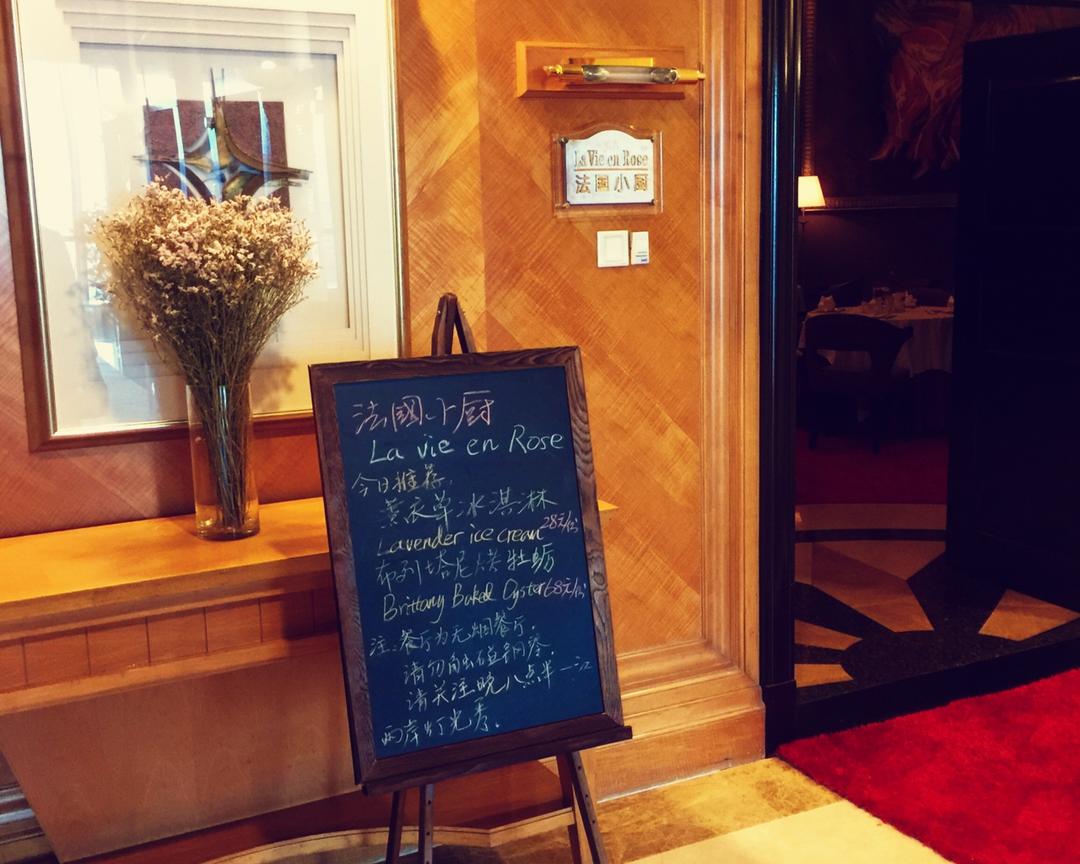 La Vie en Rose
法国小厨
法國小厨
La vie en Rose
今日推荐.
薰衣草冰淇淋
Lavender ice cream 28元/份
布列塔尼烤牡蛎
Brittany Baked Oyster 68元/份
注:餐厅为无烟餐厅.
请勿触碰钢琴.
请关注晚八点半一江
两岸灯光秀.